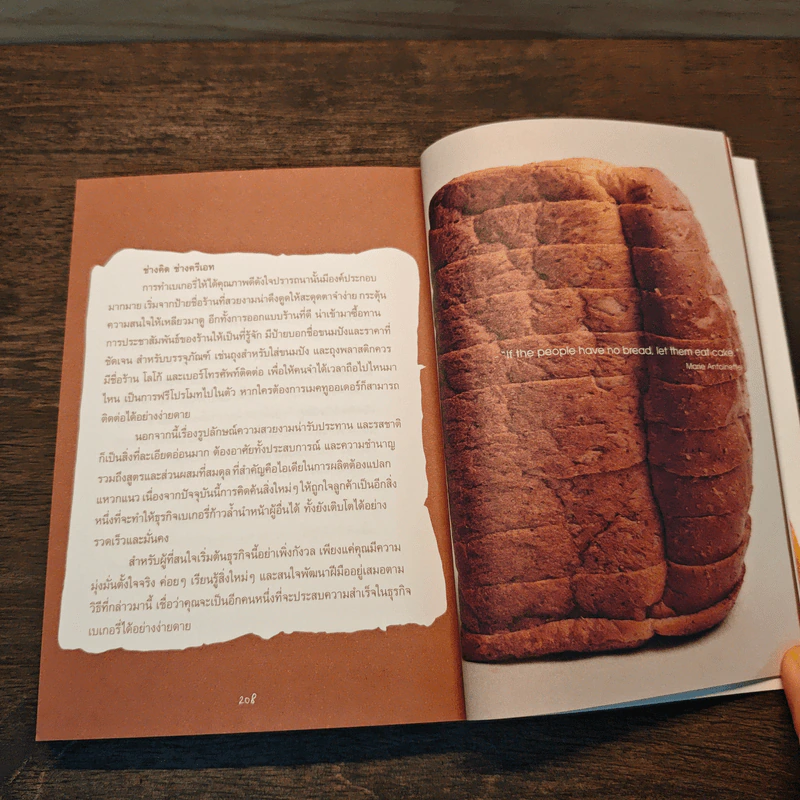 ช่างคิด ช่างครีเอท
การทำเบเกอรี่ให้ได้คุณภาพดีดังใจปรารถนานั้นมีองค์ประกอบ
มากมาย เริ่มจากป้ายชื่อร้านที่สวยงามน่าดึงดูดให้สะดุดตาจำง่าย กระตุ้น
ความสนใจให้เหลียวมาดู อีกทั้งการออกแบบร้านที่ดี น่าเข้ามาซื้อทาน
การประชาสัมพันธ์ของร้านให้เป็นที่รู้จัก มีป้ายบอกชื่อขนมปังและราคาที่
ชัดเจน สำหรับบรรจุภัณฑ์ เช่นถุงสำหรับใส่ขนมปัง และถุงพลาสติกควร
มีชื่อร้าน โลโก้ และเบอร์โทรศัพท์ติดต่อ เพื่อให้คนจำได้เวลาถือไปไหนมา
ไหน เป็นการฟรีโปรโมทไปในตัว หากใครต้องการเมคทูออเดอร์ก็สามารถ
ติดต่อได้อย่างง่ายดาย
นอกจากนี้เรื่องรูปลักษณ์ความสวยงามน่ารับประทาน และรสชาติ
ก็เป็นสิ่งที่ละเอียดอ่อนมาก ต้องอาศัยทั้งประสบการณ์ และความชำนาญ
รวมถึงสูตรและส่วนผสมที่สมดุล ที่สำคัญคือไอเดียในการผลิตต้องแปลก
แหวกแนว เนื่องจากปัจจุบันนี้การคิดค้นสิ่งใหม่ๆ ให้ถูกใจลูกค้าเป็นอีกสิ่ง
หนึ่งที่จะทำให้ธุรกิจเบเกอรี่ก้าวล้ำนำหน้าผู้อื่นได้ ทั้งยังเติบโตได้อย่าง
รวดเร็วและมั่นคง
สำหรับผู้ที่สนใจเริ่มต้นธุรกิจนี้อย่าเพิ่งกังวล เพียงแค่คุณมีความ
มุ่งมั่นตั้งใจจริง ค่อยๆ เรียนรู้สิ่งใหม่ๆ และสนใจพัฒนาฝีมืออยู่เสมอตาม
วิธีที่กล่าวมานี้ เชื่อว่าคุณจะเป็นอีกคนหนึ่งที่จะประสบความสำเร็จในธุรกิจ
เบเกอรี่ได้อย่างง่ายดาย
208
"If the people have no bread, let them eat cake."
Marie Antoinette